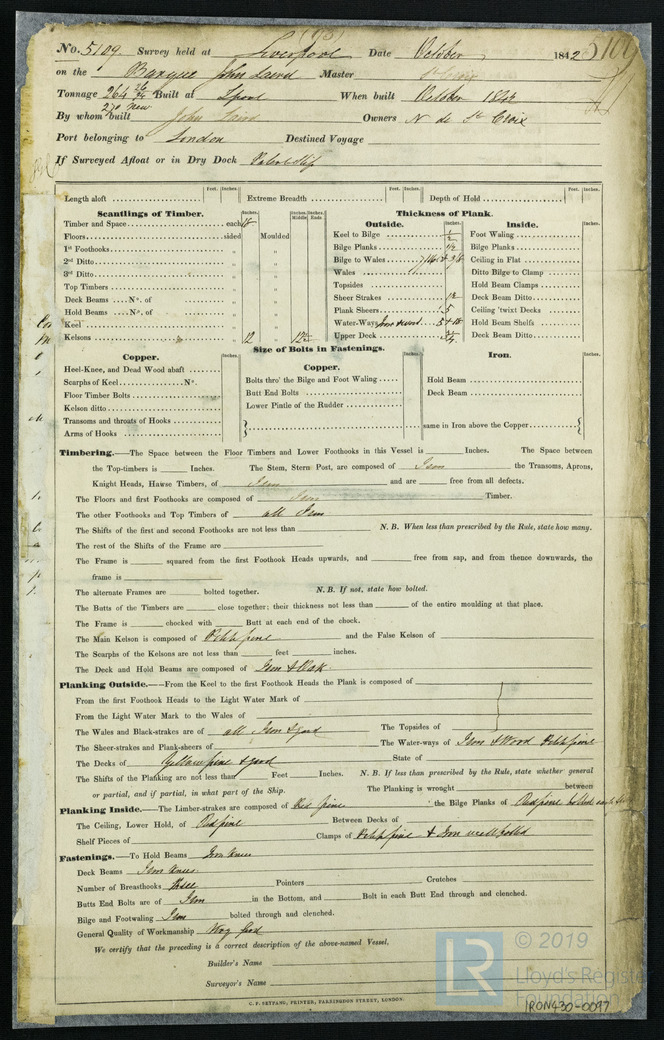 No. 5109. Survey held at Liverpool Date October 1842 5109
on the Barque John Laird Master St Croix
Tonnage 264 26/94 Built at Lpool When built October 1842
270 new
By whom built John Laird Owners N de St Croix
Port belonging to London Destined Voyage
If Surveyed Afloat or in Dry Dock Patent Slip
Feet. Inches. Feet. Inches. Feet. Inches.
Length aloft Extreme Breadth Depth of Hold
Scantlings of Timber. Thickness of Plank.
Inches. Inches. Middle Inches. Ends Outside. Inches. Inside. Inches.
Timber and Space each 18 Keel to Bilge 1/2 Foot Waling
Floors sided Moulded Bilge Planks Bilge Planks
1st Foothooks " " Bilge to Wales 7/16 & 3/8 Ceiling in Flat
2nd Ditto " " Wales Ditto Bilge to Clamp
3rd Ditto " " Topsides Hold Beam Clamps
Top Timbers " " Sheer Strakes Deck Beam Ditto
Deck Beams No. of " " Plank Sheers 5 Ceiling 'twixt Decks
Hold Beams No. of " " Water-Ways Iron & wood 5 & Hold Beam Shelfs
Keel " " Upper Deck Deck Beam Ditto
Kelsons 12 12½
Size of Bolts in Fastenings.
Copper. Inches. Copper. Inches. Iron. Inches.
Heel-Knee, and Dead Wood abaft Bolts thro' the Bilge and Foot Waling Hold Beam
Scarphs of Keel No. Butt End Bolts Deck Beam
Floor Timber Bolts Lower Pintle of the Rudder
Kelson ditto
Transoms and throats of Hooks same in Iron above the Copper
Arms of Hooks
Timbering.—The Space between the Floor Timbers and Lower Foothooks in this Vessel is Inches. The Space between
the Top-timbers is Inches. The Stem, Stern Post, are composed of Iron the Transoms, Aprons,
Knight Heads, Hawse Timbers, of Iron and are free from all defects.
The Floors and first Foothooks are composed of Iron Timber.
The other Foothooks and Top Timbers of all Iron
The Shifts of the first and second Foothooks are not less than N.B. When less than prescribed by the Rule, state how many.
The rest of the Shifts of the Frame are
The Frame is squared from the first Foothook Heads upwards, and free from sap, and from thence downwards, the
frame is
The alternate Frames are bolted together. N.B. If not, state how bolted.
The Butts of the Timbers are close together; their thickness not less than of the entire moulding at that place.
The Frame is chocked with Butt at each end of the chock.
The Main Kelson is composed of Pitch pine and the False Kelson of
The Scarphs of the Kelsons are not less than feet inches.
The Deck and Hold Beams are composed of Iron & Oak
Planking Outside.—From the Keel to the first Foothook Heads the Plank is composed of
From the first Foothook Heads to the Light Water Mark of
From the Light Water Mark to the Wales of
The Wales and Black-strakes are of all Iron & good The Topsides of
The Sheer-strakes and Plank-sheers of The Water-ways of Iron & Wood Pitch pine
The Decks of Yellow pine & good State of
The Shifts of the Planking are not less than Feet Inches. N.B. If less than prescribed by the Rule, state whether general
or partial, and if partial, in what part of the Ship. The Planking is wrought between
Planking Inside.—The Limber-strakes are composed of Red pine the Bilge Planks of Red pine bolted
The Ceiling, Lower Hold, of Red pine Between Decks of
Shelf Pieces of Clamps of Pitch pine & Iron well bolted
Fastenings.—To Hold Beams Iron knees
Deck Beams Iron knees
Number of Breasthooks Three Pointers Crutches
Butts End Bolts are of Iron in the Bottom, and Bolt in each Butt End through and clenched.
Bilge and Footwaling Iron bolted through and clenched.
General Quality of Workmanship Very good
We certify that the preceding is a correct description of the above-named Vessel.
Builder's Name
Surveyor's Name
C. F. SEYFANG, PRINTER, FARRINGDON STREET, LONDON.
LR © 2019
Lloyd's Register
Foundation
IRON430-0097